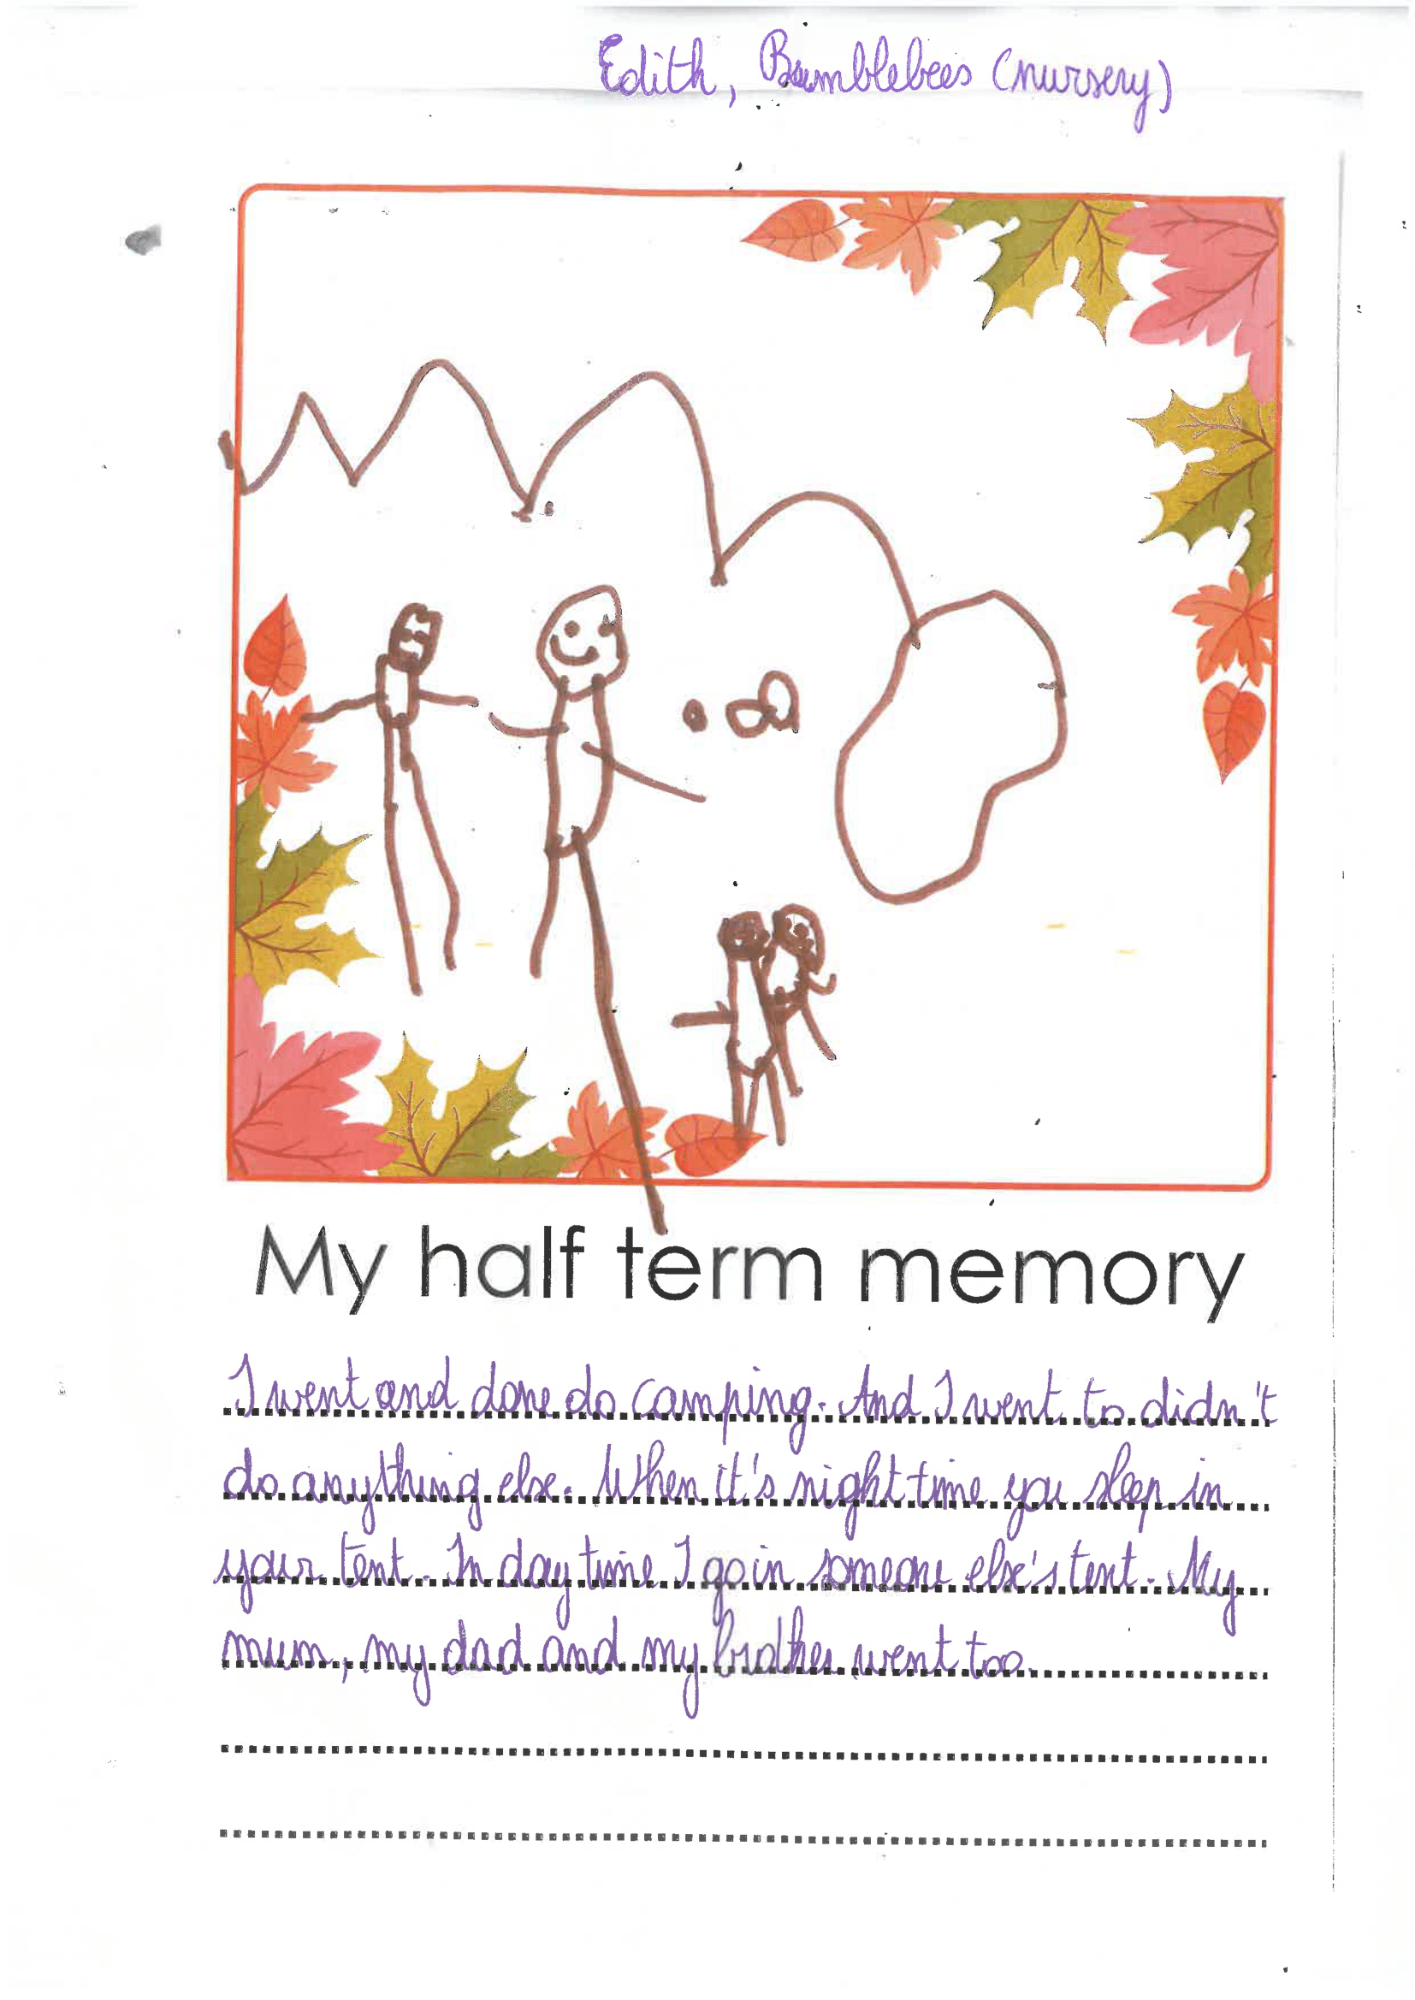 Edith, Bumblebees (nursery)
My half term memory
I went and done do camping. And I went to didn't
do anything else. When it's night time you sleep in
your tent. In day time I go in someone else's tent. My
mum, my dad and my brother went too.